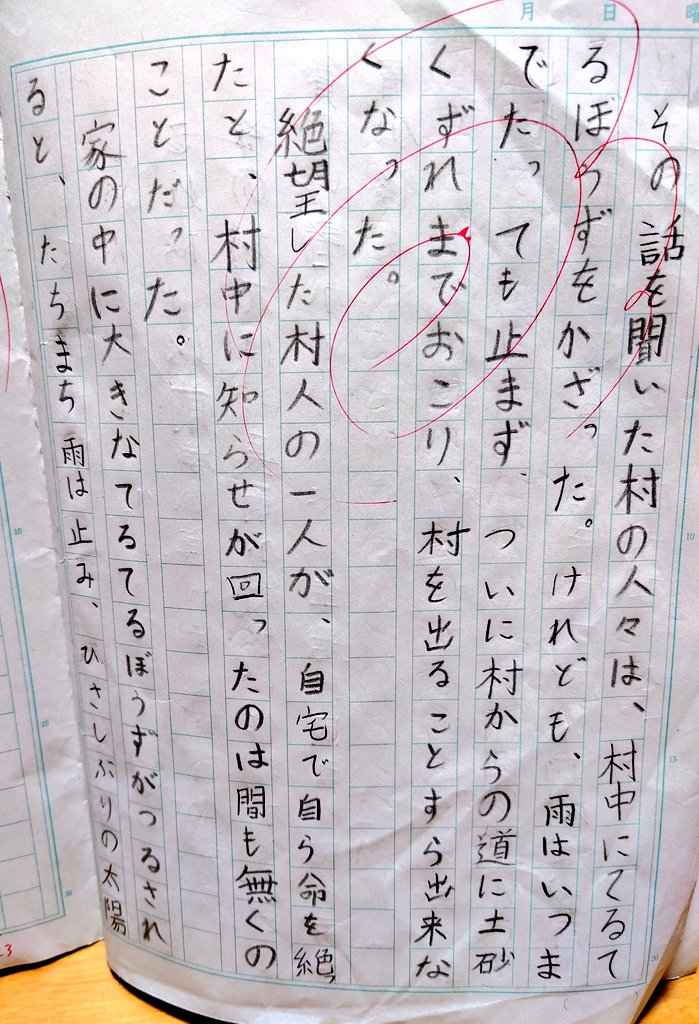 月　日　曜
その話を聞いた村の人々は、村中にてるて
るぼうずをかざった。けれども、雨はいつま
でたっても止まず、ついに村からの道に土砂
くずれまでおこり、村を出ることすら出来な
くなった。
絶望した村人の一人が、自宅で自ら命を絶っ
たと、村中に知らせが回ったのは間も無くの
ことだった。
家の中に大きなてるてるぼうずがつるされ
ると、たちまち雨は止み、ひさしぶりの太陽
10
15
20
10
15
20